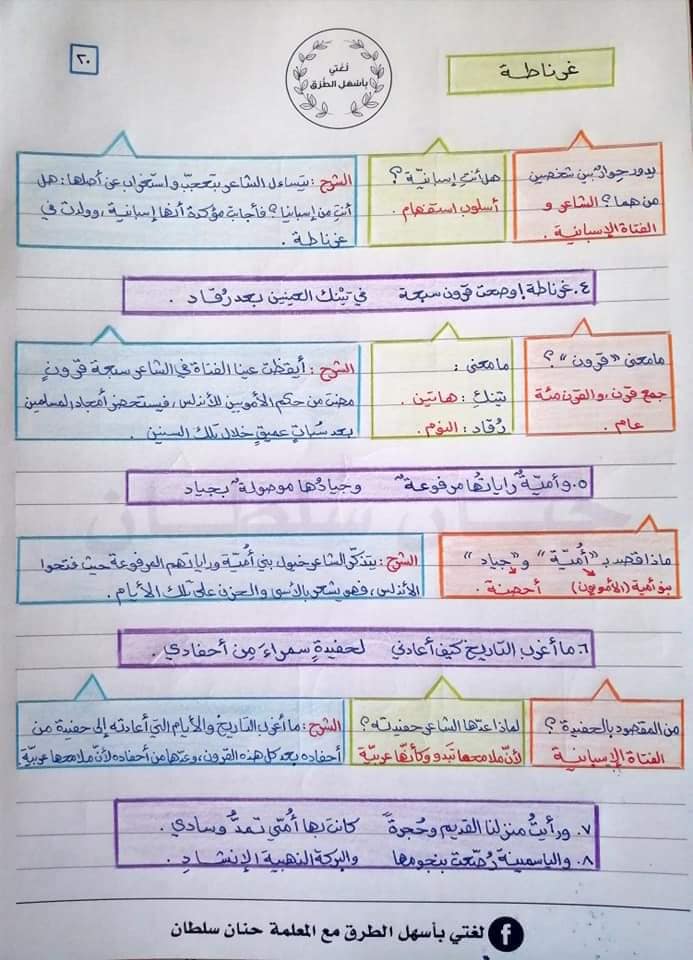 ٢٠
لغتي
بأسهل الطرق
غرناطة
يدور حوار بين شخصين
من هما؟ الشاعر و
الفتاة الإسبانية .
هل أنتِ إسبانيّة ؟
أسلوب استفهام .
الشرح : يتساءل الشاعر بتعجّب واستغراب عن أصلها : هل
أنتِ من إسبانيا ؟ فأجابت مؤكدة أنها إسبانية ، وولدت في
غرناطة .
٤. غرناطة ! وصحت قرون سبعة في تينك العينين بعد رُقاد .
ما معنى "قرون" ؟
جمع قرن ، والقرن مئة
عام .
ما معنى :
تينك : هاتين .
رُقاد : النوم .
الشرح : أيقظت عينا الفتاة في الشاعر سبعة قرونٍ
مضت من حكم الأمويين للأندلس ، فيستحضر أمجاد المسلمين
بعد سُباتٍ عميقٍ خلال تلك السنين .
٥. وأميّةٌ راياتُها مرفوعةٌ وجيادُها موصولةٌ بجياد
ماذا قصد بـ "أُميّة" و "جياد"
بنو أمية (الأمويون) أحصنة .
الشرح : يتذكّر الشاعر خيول بني أُميّة وراياتهم المرفوعة حيث فتحوا
الأندلس ، فهو يشعر بالأسى والحزن على تلك الأيام .
٦. ما أغرب التاريخ كيف أعادني لحفيدةٍ سمراءَ مِن أحفادي .
من المقصود بالحفيدة ؟
الفتاة الإسبانية
لماذا عدّها الشاعر حفيدته ؟
لأنّ ملامحها تبدو وكأنّها عربيّة
الشرح : ما أغرب التاريخ والأيام التي أعادته إلى حفيدة من
أحفاده بعد كل هذه القرون ، وعدّها من أحفاده لأنّ ملامحها عربيّة
٧. ورأيتُ منزلنا القديم وحُجرةً كانت بها أُمّي تمدُّ وسادي .
٨. والياسمينة رُصّعت بنجومها والبركة الذهبية الإنشادِ .
لغتي بأسهل الطرق مع المعلمة حنان سلطان
f
حنان سلطان